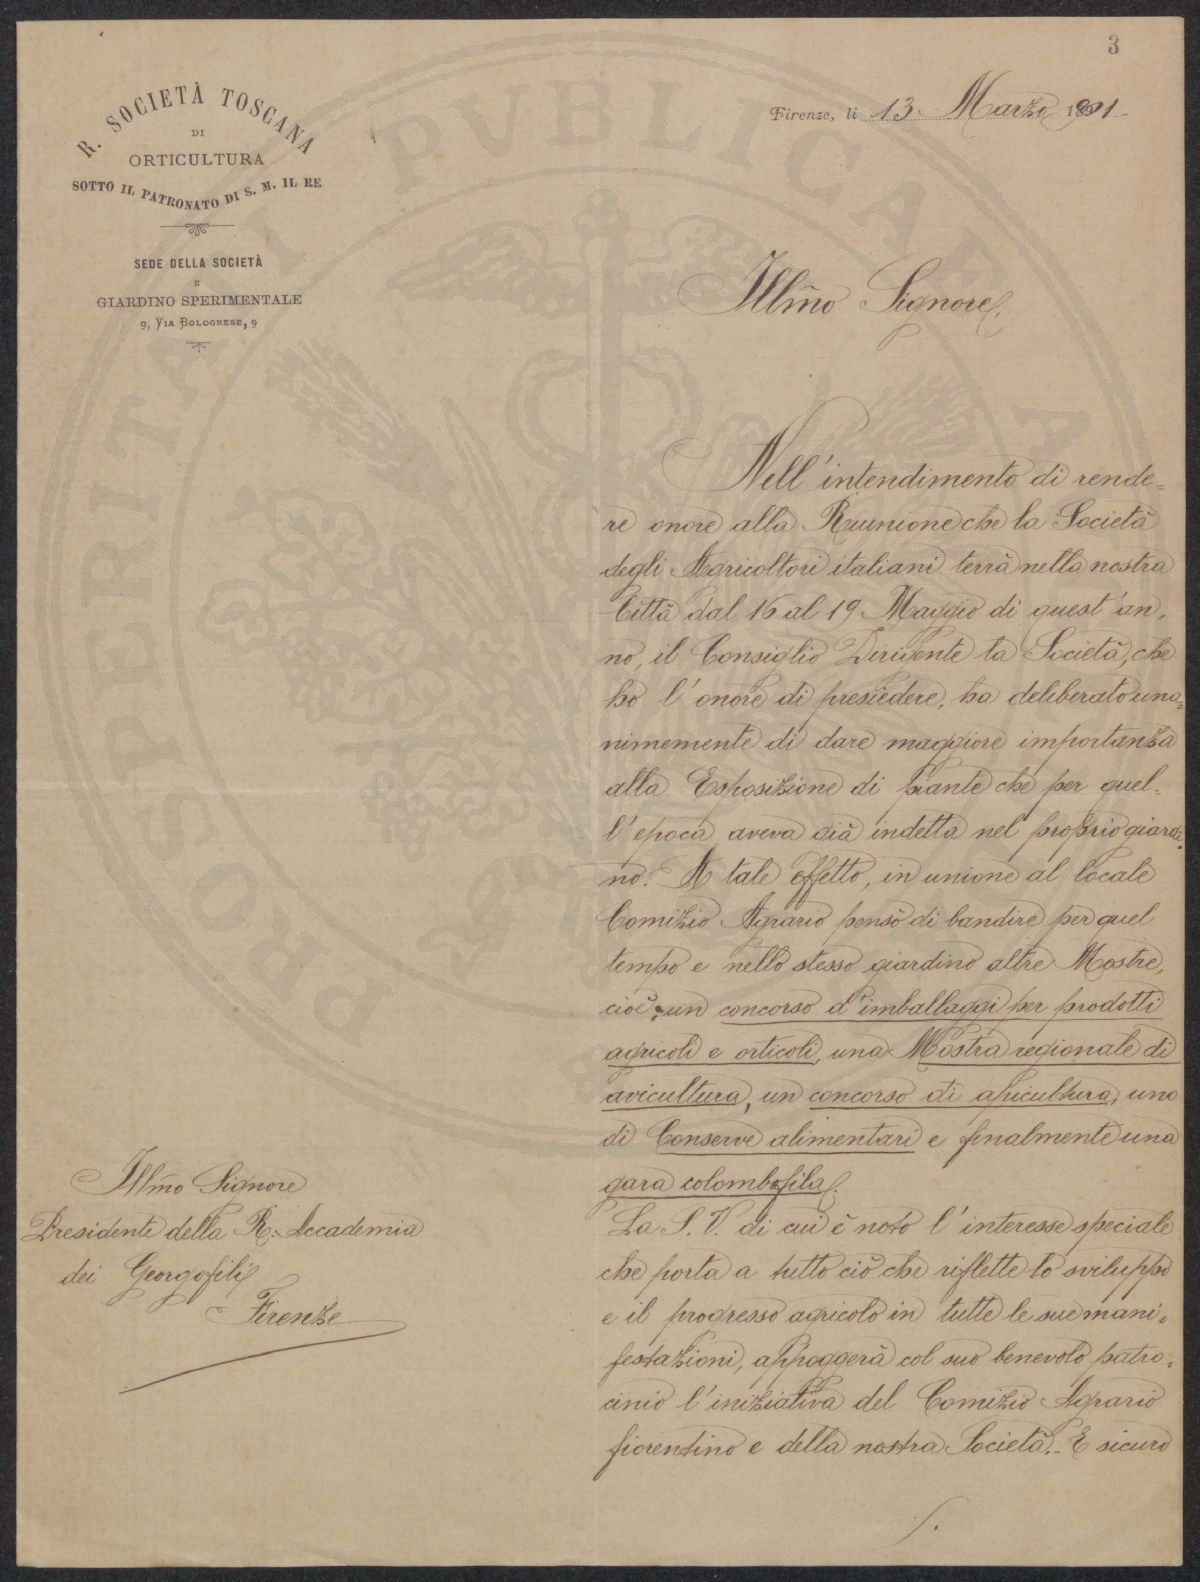 3
R. SOCIETÀ TOSCANA
DI
ORTICULTURA
SOTTO IL PATRONATO DI S. M. IL RE
SEDE DELLA SOCIETÀ
E
GIARDINO SPERIMENTALE
9, VIA BOLOGNESE, 9
Firenze, li 13 Marzo 1901
Illm̃o Signore
Nell'intendimento di rende=
re onore alla Riunione che la Società
degli Agricoltori italiani terrà nella nostra
Città dal 16 al 19 Maggio di quest'an,
no, il Consiglio Dirigente la Società, che
ho l'onore di presiedere, ha deliberato una=
nimemente di dare maggiore importanza
alla Esposizione di piante che per quel=
l'epoca aveva già indetta nel proprio giardi=
no. A tale effetto, in unione al locale
Comizio Agrario pensò di bandire per quel
tempo e nello stesso giardino altre Mostre,
cioè; un concorso d'imballaggi per prodotti
agricoli e orticoli, una Mostra regionale di
avicultura, un concorso di apicultura, uno
di Conserve alimentari e finalmente una
gara colombofila.
La S. V. di cui è noto l'interesse speciale
che porta a tutto ciò che riflette lo sviluppo
e il progresso agricolo in tutte le sue mani=
festazioni, appoggerà col suo benevolo patro=
cinio l'iniziativa del Comizio Agrario
fiorentino e della nostra Società. E sicuro
Illm̃o Signore
Presidente della R. Accademia
dei Georgofili
Firenze
PROSPERITATI PUBLICAE A